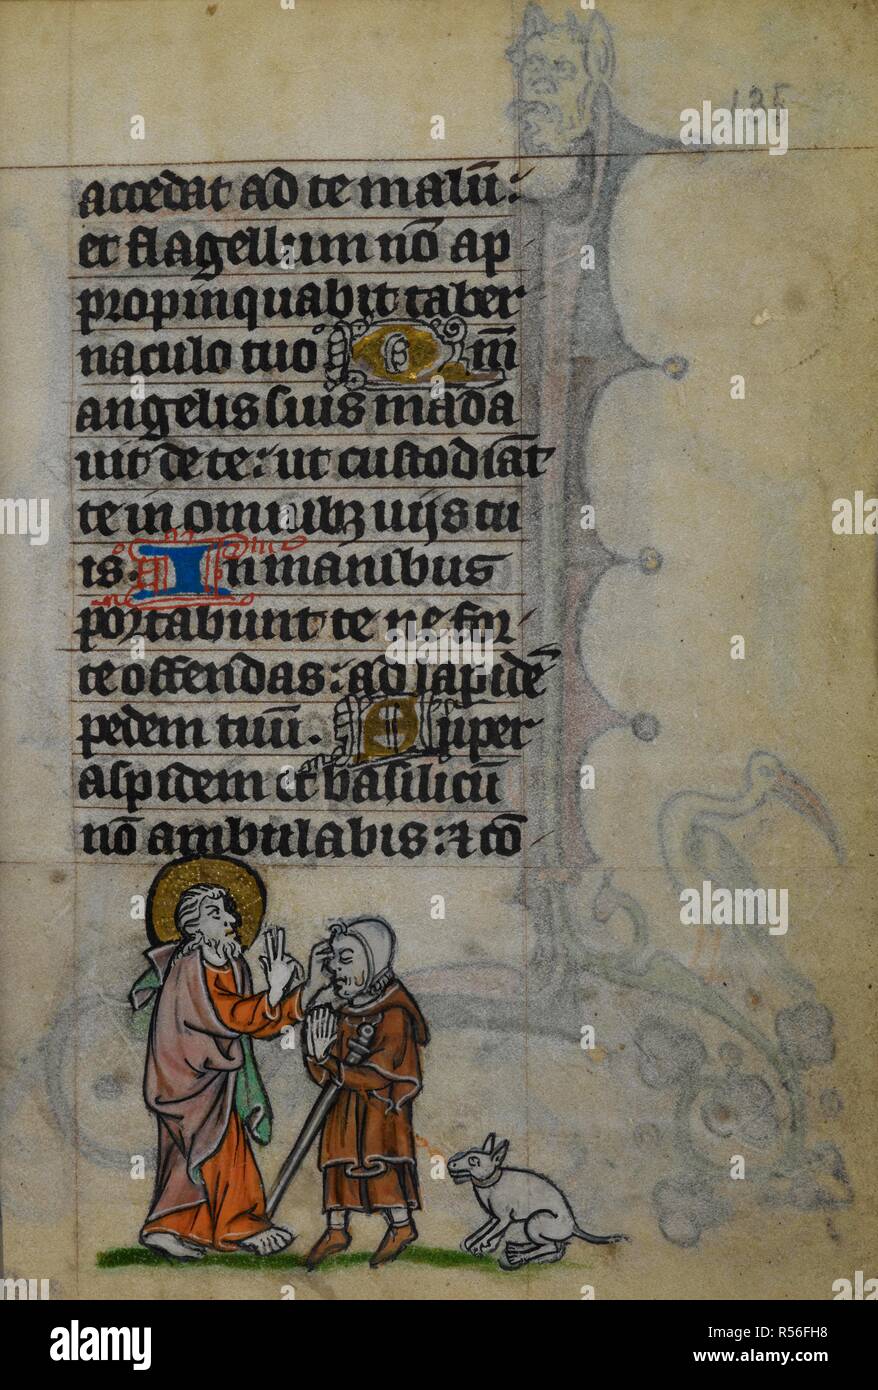 135
accedat ad te malū:
et flagellum nō ap
propinquabit taber
naculo tuo Qm̄
angelis suis mada
uit de te: ut custodiāt
te in omnibꝫ uijs tu
is. In manibus
portabunt te ne for
te offendas: ad lapidē
pedem tuū. Super
aspidem et basilicū
nō ambulabis: ⁊ cō
alamy
Image ID: R56FH8
www.alamy.com